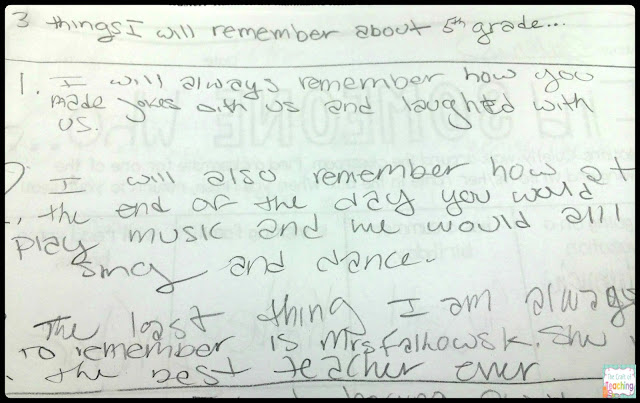 3 things I will remember about 5th grade...
1. I will always remember how you
made jokes with us and laughed with
us.
I will also remember how at
the end of the day you would
play music and we would all
sing and dance.
The last thing I am always
to remember is Mrs. Falkowsk. She
the best teacher ever.
The Craft of
Teaching